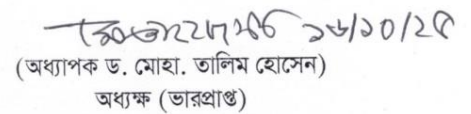 ১৬/১০/২৫
(অধ্যাপক ড. মোহা. তালিম হোসেন)
অধ্যক্ষ (ভারপ্রাপ্ত)